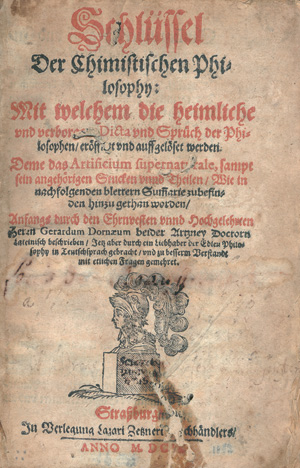 Schlüssel
Der Chimistischen Phi-
losophy:
Mit welchem die heimliche
vnd verborgene Dicta vnd Sprüch der Phi-
losophen/ eröffnet vnd auffgelöset werden.
Deme das Artificium supernaturale, sampt
sein angehörigen Stucken vnnd Theilen/ Wie in
nachfolgenden blettern zubefin-
den hinzu gethan worden/
Anfangs durch den Ehrnvesten vnnd Hochgelehrten
Herrn Gerardum Dornæum beider Artzney Doctorn
Lateinisch beschrieben/ Jetz aber durch ein liebhaber der Edlen Philo-
sophy in Teutschsprach gebracht/ vnd zu besserm Verstandt
mit etlichen Fragen gemehret.
Straßburg
In Verlegung Lazari Zetzneri Buchhändlers/
ANNO M. DC.